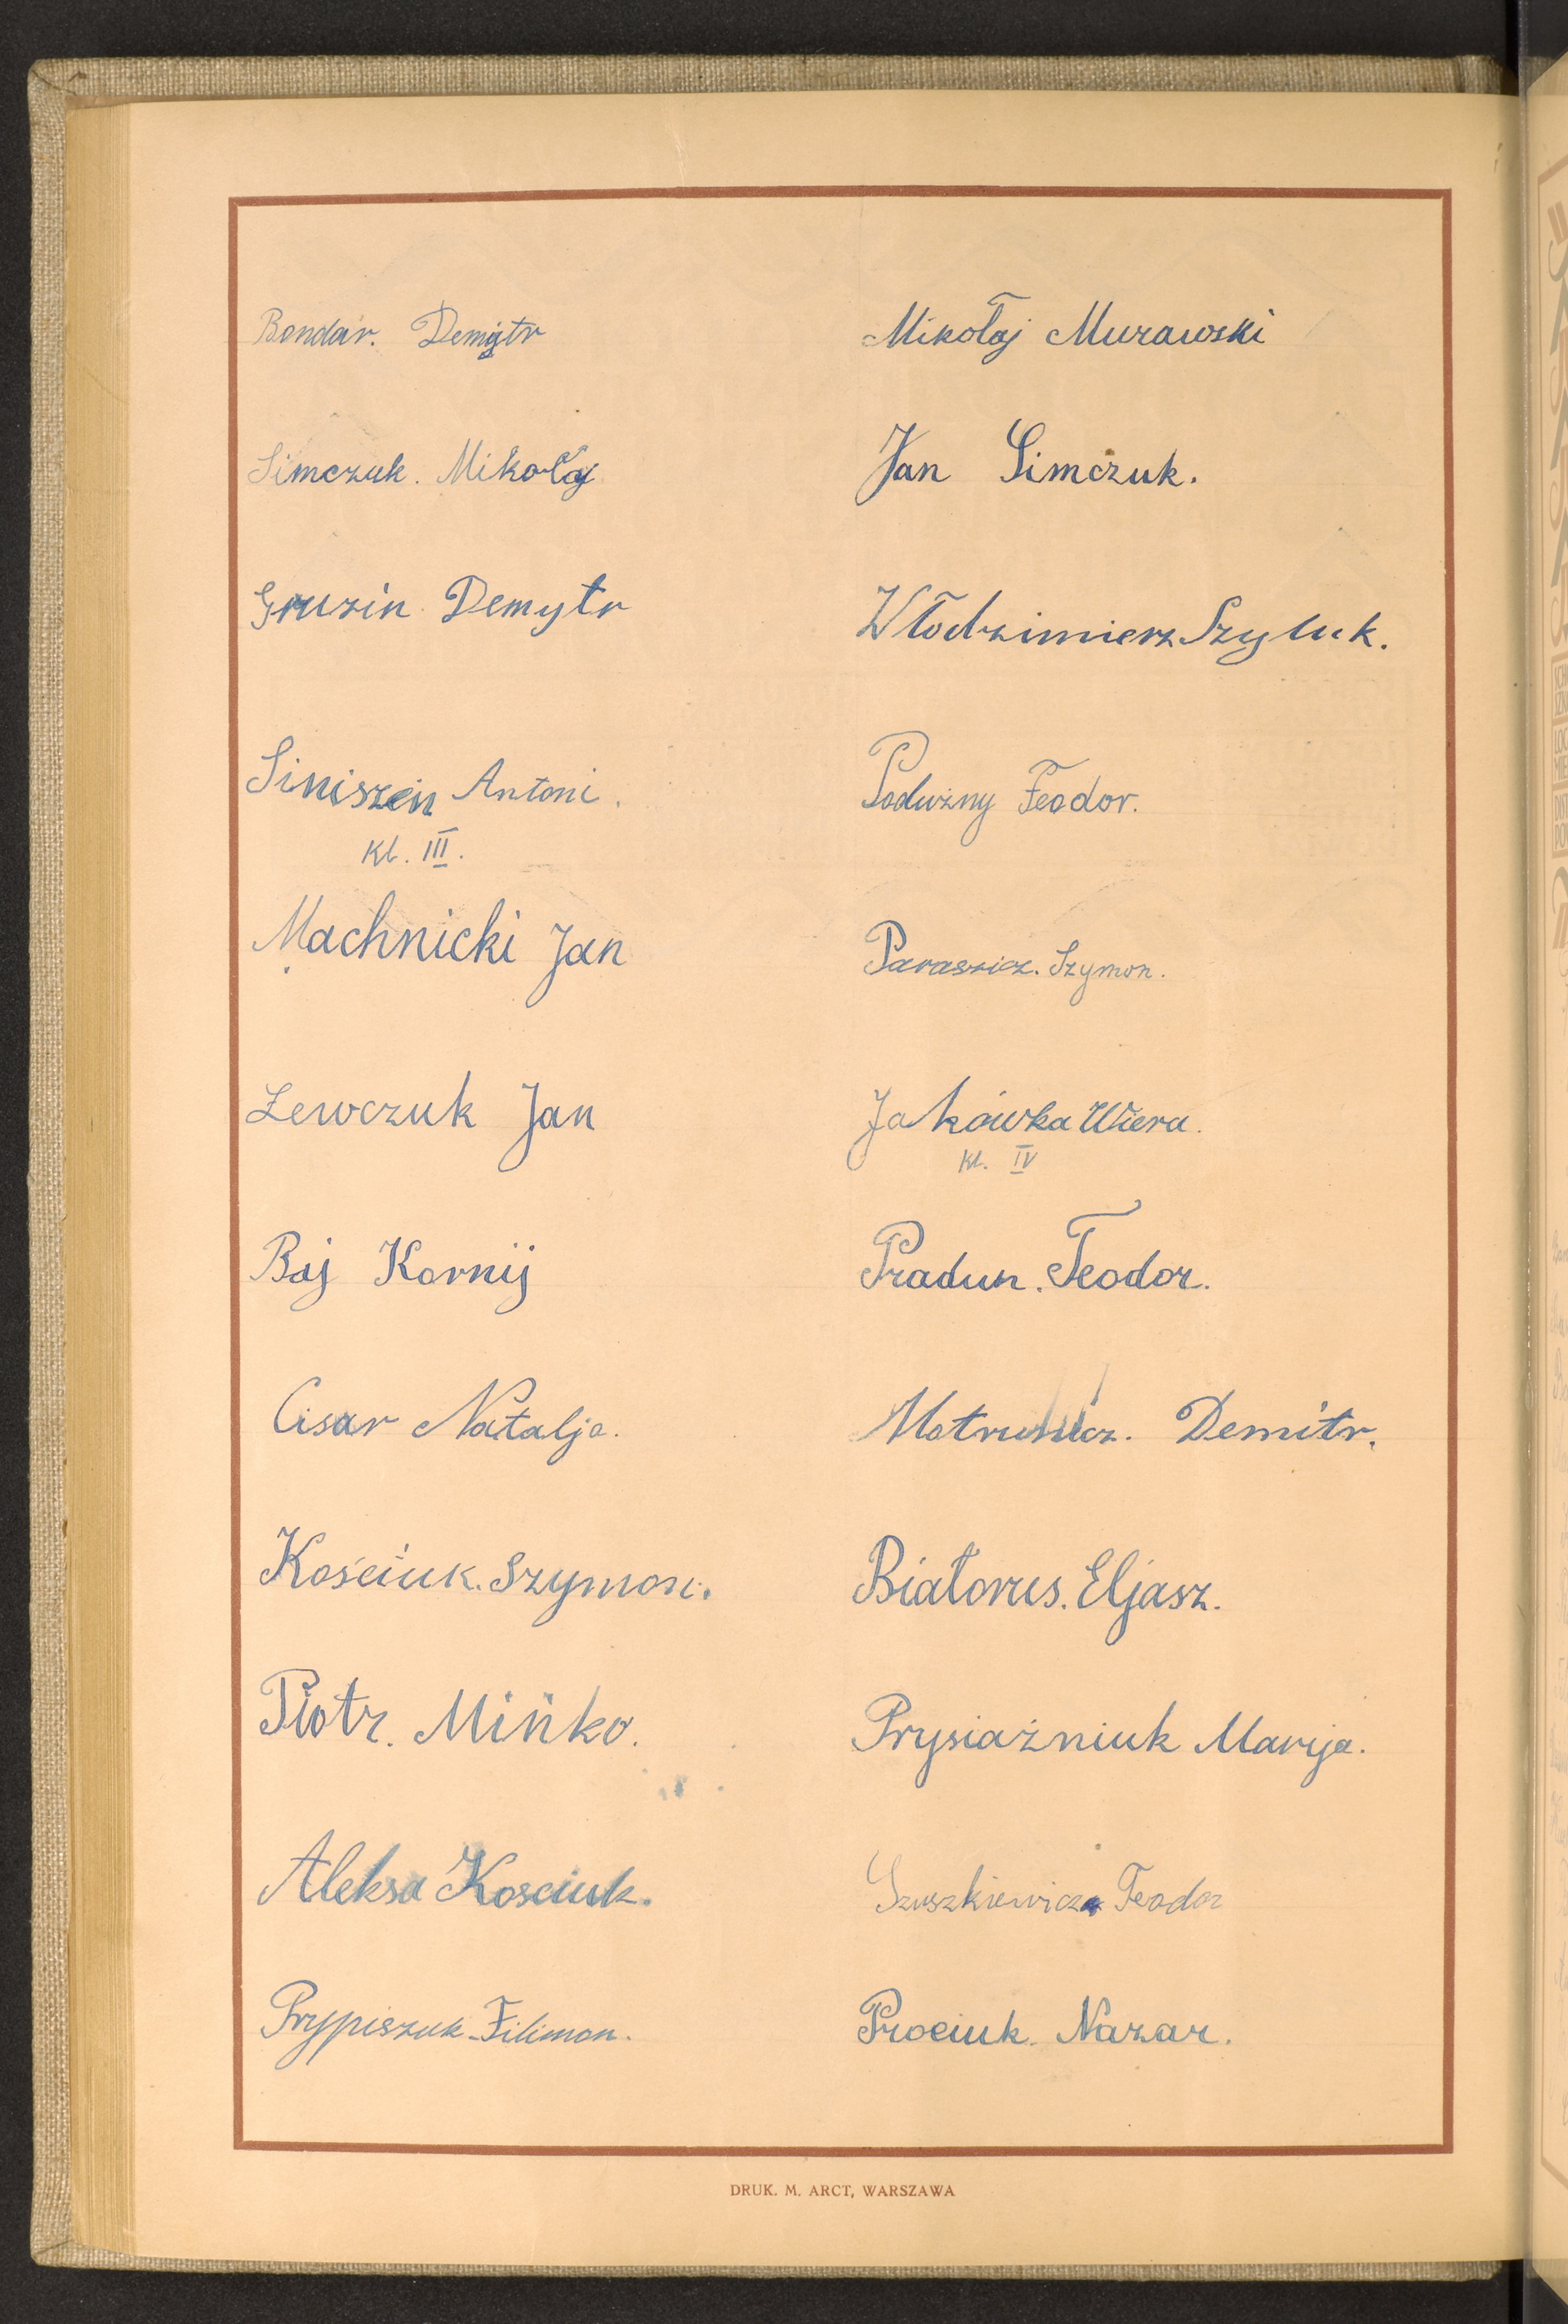 Bondar. Demytr
Simczuk. Mikołaj
Gruzin Demytr
Siniszen Antoni.
Kl. III.
Machnicki Jan
Lewczuk Jan
Baj Kornij
Cisar Natalja.
Kościuk. Szymon.
Piotr. Mińko.
Aleksa Kosciuk.
Prypiszuk Filimon.
Mikołaj Murawski
Jan Simczuk.
Włodzimierz Szyluk.
Poduzny Feodor.
Paraszicz. Szymon.
Jakówka Wiera.
Kl. IV
Pradun. Teodor.
Demitr.
Białorus. Eljasz.
Prysiażniuk Marija.
Szuszkiewicz Teodor
Prociuk. Nazar.
DRUK. M. ARCT, WARSZAWA